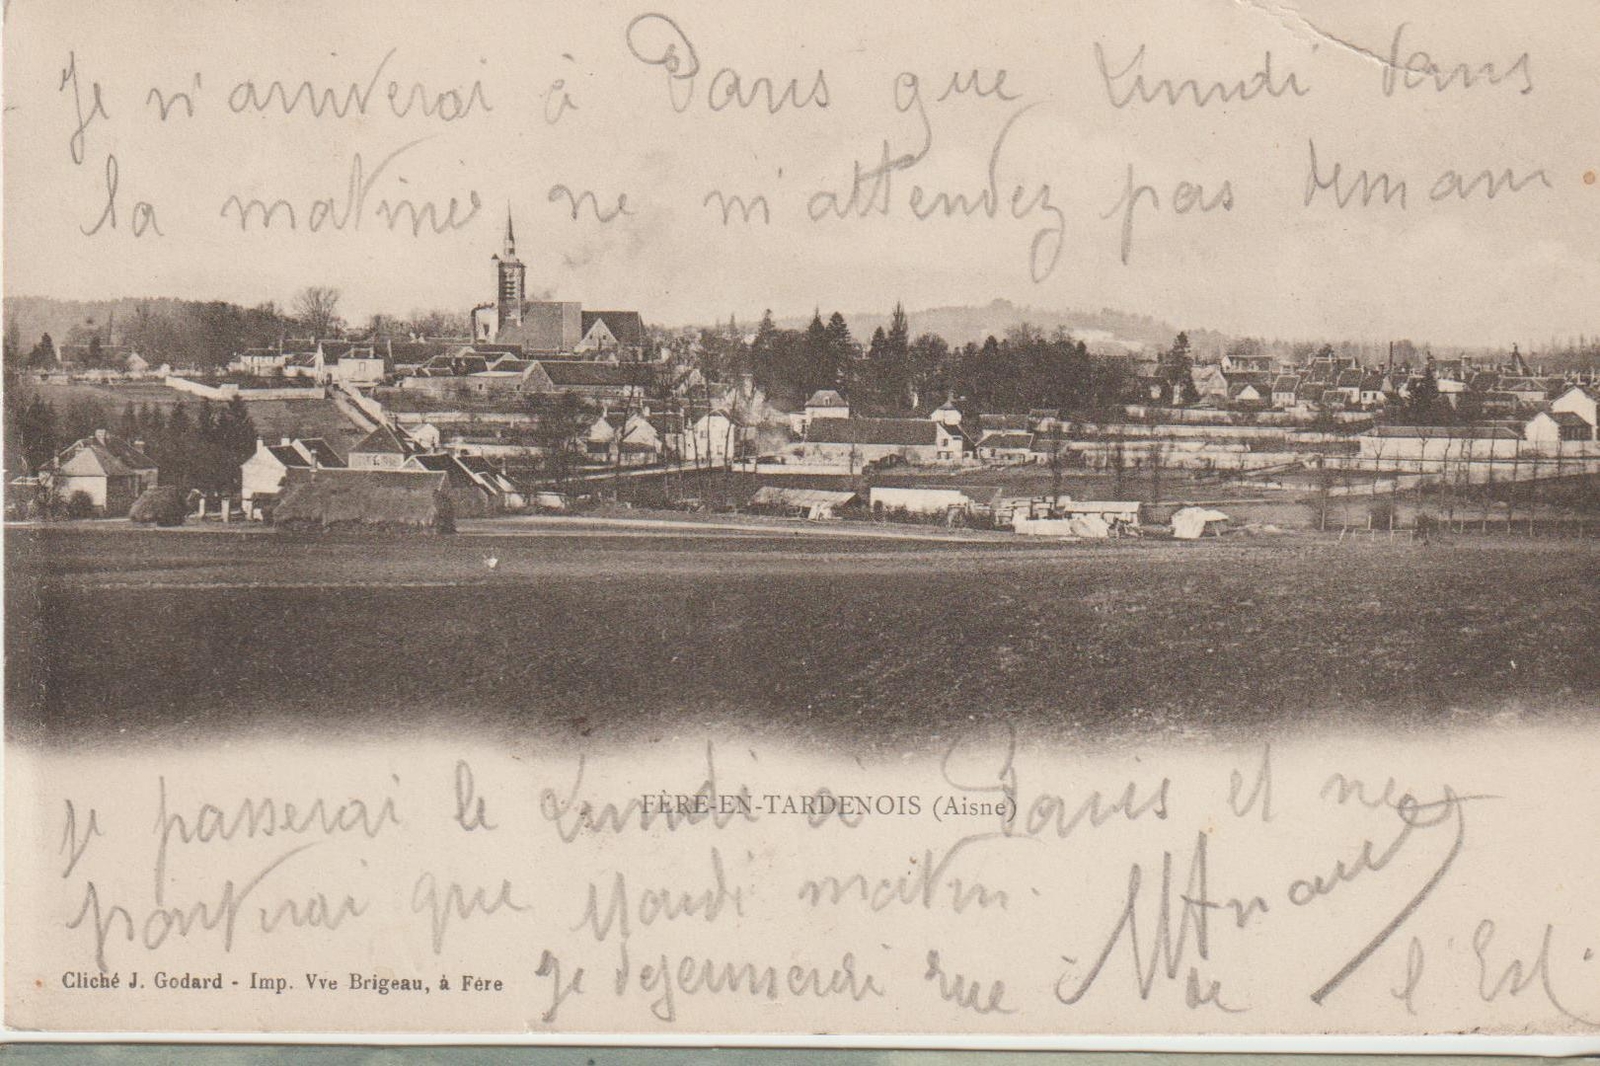 Je n'arriverai à Paris que Lundi dans
la matinée ne m'attendez pas demain
FÈRE-EN-TARDENOIS (Aisne)
je passerai le Lundi à Paris et ne
partirai que Mardi matin.
Je dejeunerai rue de l'Est
Cliché J. Godard - Imp. Vve Brigeau, à Fère